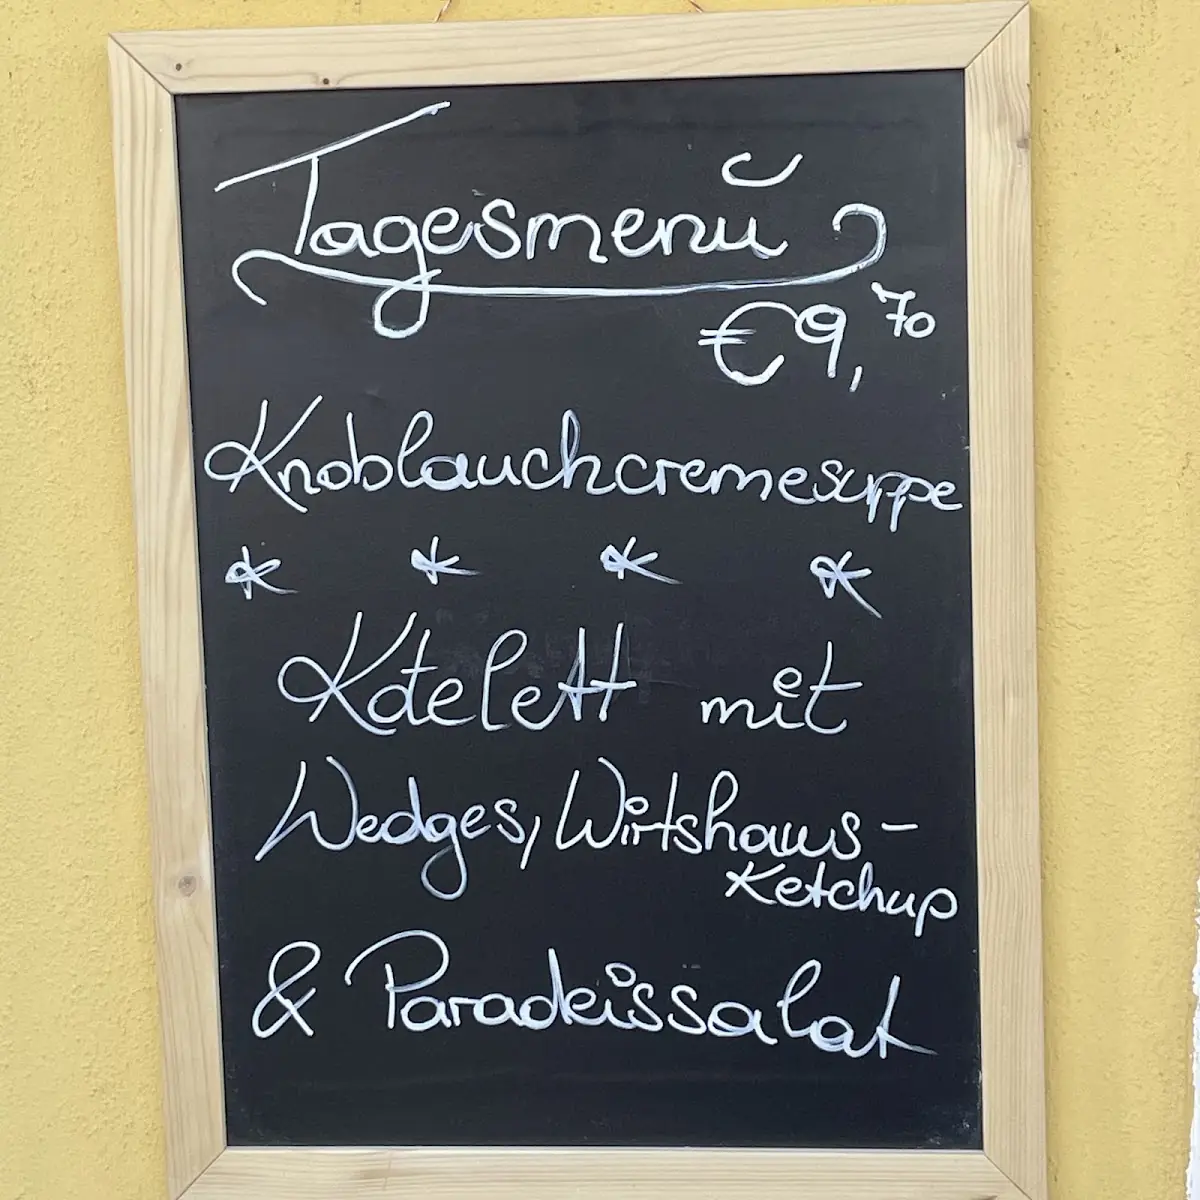 Tagesmenü
€9,70
Knoblauchcremesuppe
* * * *
Kotelett mit
Wedges, Wirtshaus-
Ketchup
& Paradeissalat